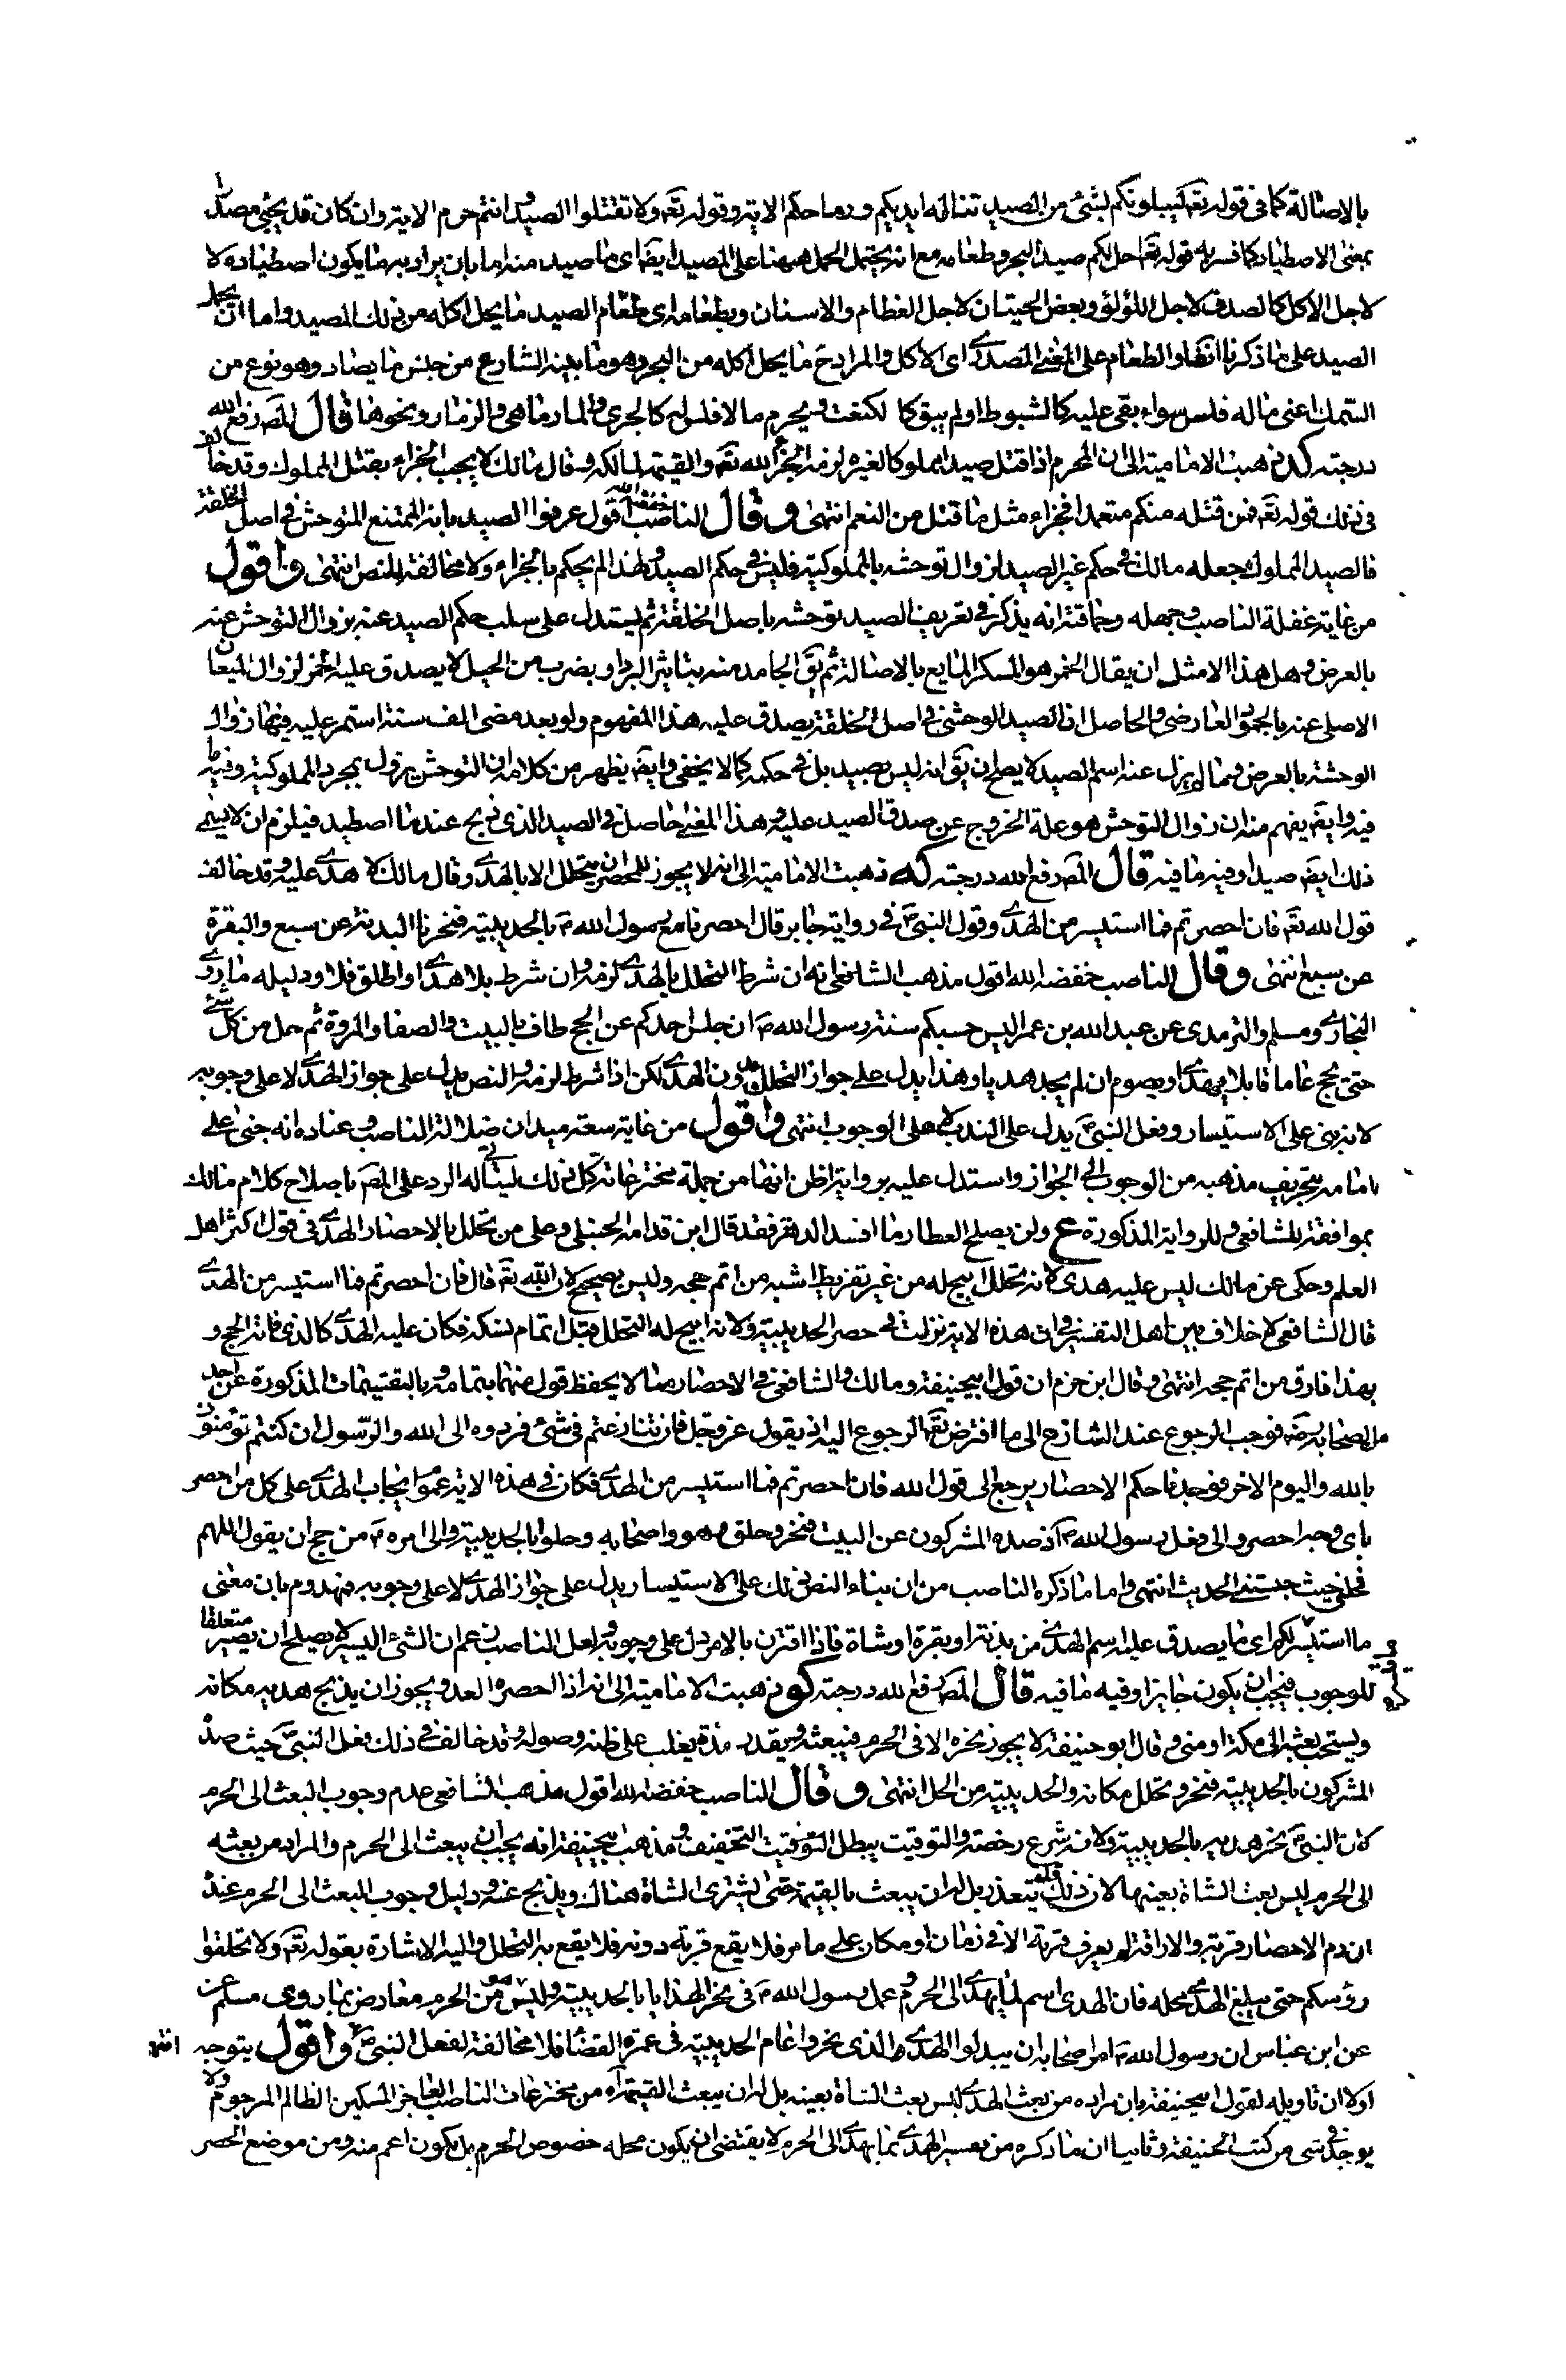 بالاصالة كما فى قوله تعه ليبلونكم بشئ من الصيد تناله ايديكم ورماحكم الاية وقوله تعه ولا تقتلوا الصيد وانتم حرم الاية وان كان قد يجئ مصدرا
بمعنى الاصطياد كما فسر به قوله تعه احل لكم صيد البحر وطعامه مع انه يحتمل الحمل ههنا على المصيد ايضا اى ما صيد منه اما بان يراد به ما يكون اصطياده لا
لاجل الاكل كالصدف لاجل اللؤلؤ وبعض الحيتان لاجل العظام والاسنان وبطعامه اى طعام الصيد ما يحل اكله من ذلك المصيد واما ان يحمل
الصيد على ما ذكرنا انفا والطعام على المعنى المصدرى اى الاكل والمراد ح ما يحل اكله من البحر وهو ما بينه الشارع من جنس ما يصاد وهو نوع من
السمك اعنى ماله فلس سواء بقى عليه كالشبوط او لم يبق كالكنعت ويحرم ما لا فلس له كالجرى والمارماهى والزمار ونحوها قال المص رفع الله
درجته كد ذهبت الامامية الى ان المحرم اذا قتل صيدا مملوكا لغيره لزمه الجزاء لله تعه والقيمة لمالكه وقال مالك لا يجب الجزاء بقتل المملوك وقد خالف
فى ذلك قوله تعه فمن قتله منكم متعمدا فجزاء مثل ما قتل من النعم انتهى وقال الناصب خفضه الله اقول عرفوا الصيد بانه الممتنع المتوحش فى اصل الخلقة
فالصيد المملوك جعله مالك فى حكم غير الصيد لزوال توحشه بالمملوكية فليس فى حكم الصيد ولهذا لم يحكم بالجزاء ولا مخالفة للنص انتهى واقول
من غاية غفلة الناصب وجهله وحماقته انه يذكر فى تعريف الصيد توحشه باصل الخلقة ثم يستدل على سلب حكم الصيد عنه بزوال التوحش عنه
بالعرض وهل هذا الا مثل ان يقال الخمر هو المسكر المايع بالاصالة ثم يق الجامد منه بتاثير البرد او بضرب من الحيل لا يصدق عليه الخمر لزوال الميعان
الاصلى عنه بالجمود العارضى والحاصل ان الصيد الوحشى فى اصل الخلقة يصدق عليه هذا المفهوم ولو بعد مضى الف سنة استمر عليه فيها زوال
الوحشة بالعرض وما لم يزل عنه اسم الصيد لا يصلح ان يق انه ليس بصيد بل فى حكمه كما لا يخفى وايضا يظهر من كلامه ان التوحش يزول بمجرد المملوكية وفيه ما
فيه وايضا يفهم منه ان زوال التوحش هو علة الخروج عن صدق الصيد عليه وهذا المعنى حاصل فى الصيد الذى ذبح عند ما اصطيد فيلزم ان لا يسمى
ذلك ايضا صيدا وفيه ما فيه قال المص رفع الله درجته كه ذهبت الامامية الى انه لا يجوز للمحصر ان يتحلل الا بالهدى وقال مالك لا هدى عليه وقد خالف
قول الله تعه فان احصرتم فما استيسر من الهدى وقول النبى ص فى رواية جابر قال احصرنا مع رسول الله ص بالحديبية فنحرنا البدنة عن سبع والبقرة
عن سبع انتهى وقال الناصب خفضه الله اقول مذهب الشافعى انه ان شرط التحلل بالهدى لزمه وان شرط بلا هدى او اطلق فلا ودليله ما روى
البخارى ومسلم والترمذى عن عبد الله بن عمر اليس حسبكم سنة رسول الله ص ان حبس احدكم عن الحج طاف بالبيت والصفا والمروة ثم حل من كل شئ
حتى يحج عاما قابلا فيهدى او يصوم ان لم يجد هديا وهذا يدل على جواز التحلل بدون الهدى لكن اذا شرط لزمه والنص يدل على جواز الهدى لا على وجوبه
لانه بنى على الاستيسار وفعل النبى ص يدل على الندب لا على الوجوب انتهى واقول من غاية سعة ميدان ضلالة الناصب وعناده انه جنى على
امامه بتحريف مذهبه من الوجوب الى الجواز واستدل عليه برواية اظن انها من جملة مخترعاته كل ذلك ليتاتى له الرد على المص باصلاح كلام مالك
بموافقة للشافعى وللرواية المذكورة ع ولن يصلح العطار ما افسد الدهر فقد قال ابن قدامه الحنبلى وعلى من تحلل بالاحصار الهدى فى قول اكثر اهل
العلم وحكى عن مالك ليس عليه هدى لانه تحلل ابيح له من غير تفريط اشبه من اتم حجه وليس بصحيح لان الله تعه قال فان احصرتم فما استيسر من الهدى
قال الشافعى لا خلاف بين اهل التفسير فى ان هذه الاية نزلت فى حصر الحديبية ولانه ابيح له التحلل قبل اتمام نسكه فكان عليه الهدى كالذى فاته الحج و
بهذا فارق من اتم حجه انتهى وقال ابن حزم ان قول ابيحنيفة ومالك والشافعى فى الاحصار مما لا يحفظ قول منها بتمامه وبالتقسيمات المذكورة عن احد
من الصحابة رضه فوجب الرجوع عند التنازع الى ما افترض تعه الرجوع اليه اذ يقول عز وجل فان تنازعتم فى شئ فردوه الى الله والرسول ان كنتم تؤمنون
بالله واليوم الاخر فوجدنا حكم الاحصار يرجع الى قول الله فان احصرتم فما استيسر من الهدى فكان فى هذه الاية عموم ايجاب الهدى على كل من احصر
باى وجه احصر والى فعل رسول الله ص اذ صده المشركون عن البيت فنحر وحلق وهو واصحابه وحلوا بالحديبية والى امره ص من حج ان يقول اللهم
فمحلى حيث حبستنى الحديث انتهى واما ما ذكره الناصب من ان بناء النص ذلك على الاستيسار يدل على جواز الهدى لا على وجوبه فمهدوم بان معنى
ما استيسر لكم اى ما يصدق عليه اسم الهدى من بدنة او بقرة او شاة فاذا اقترن بالامر دل على وجوبه ولعل الناصب زعم ان الشئ اليسير لا يصلح ان يصير متعلقا
للوجوب فيجب ان يكون جايزا وفيه ما فيه قال المص رفع الله درجته كو ذهبت الامامية الى انه اذا احصره العدو يجوز ان يذبح هديه مكانه
ويستحب بعثه الى مكة او منى وقال ابو حنيفة لا يجوز نحره الا فى الحرم فيبعثه ويقدر مدة يغلب على ظنه وصوله وقد خالف فى ذلك فعل النبى ص حيث صده
المشركون بالحديبية فنحر وتحلل مكانه والحديبية من الحل انتهى وقال الناصب خفضه الله اقول مذهب الشافعى عدم وجوب البعث الى الحرم
لان النبى ص نحر هديه بالحديبية ولانه شرع رخصة والتوقيت يبطل التخفيف ومذهب ابيحنيفة انه يجب ان يبعث الى الحرم والمراد من بعثه
الى الحرم ليس بعث الشاة بعينها لان ذلك قد يتعذر بل له ان يبعث بالقيمة حتى يشترى الشاة هناك ويذبح عنه ودليل وجوب البعث الى الحرم عنده
ان دم الاحصار قربة والاراقة لم يعرف قربة الا فى زمان او مكان على ما مر فلا يقع قربة دونه فلا يقع به التحلل واليه الاشارة بقوله تعه ولا تحلقوا
رؤسكم حتى يبلغ الهدى محله فان الهدى اسم لما يهدى الى الحرم وعمل رسول الله ص فى نحر الهدايا بالحديبية وليس هو من الحرم معارض بما روى مسلم عن
عن ابن عباس ان رسول الله ص امر اصحابه ان يبدلوا الهدى الذى نحروا عام الحديبية فى عمرة القضا فلا مخالفة لفعل النبى ص واقول يتوجه انتهى
اولا ان تاويله لقول ابيحنيفة بان مراده من بعث الهدى ليس بعث الشاة بعينه بل له ان يبعث القيمة اه من مخترعات الناصب العاجز المسكين الظالم المرجوم ولا
يوجد فى شئ من كتب الحنيفة وثانيا ان ما ذكره من تفسير الهدى بما يهدى الى الحرم لا يقتضى ان يكون محله خصوص الحرم بل يكون اعم منه ومن موضع الحصر